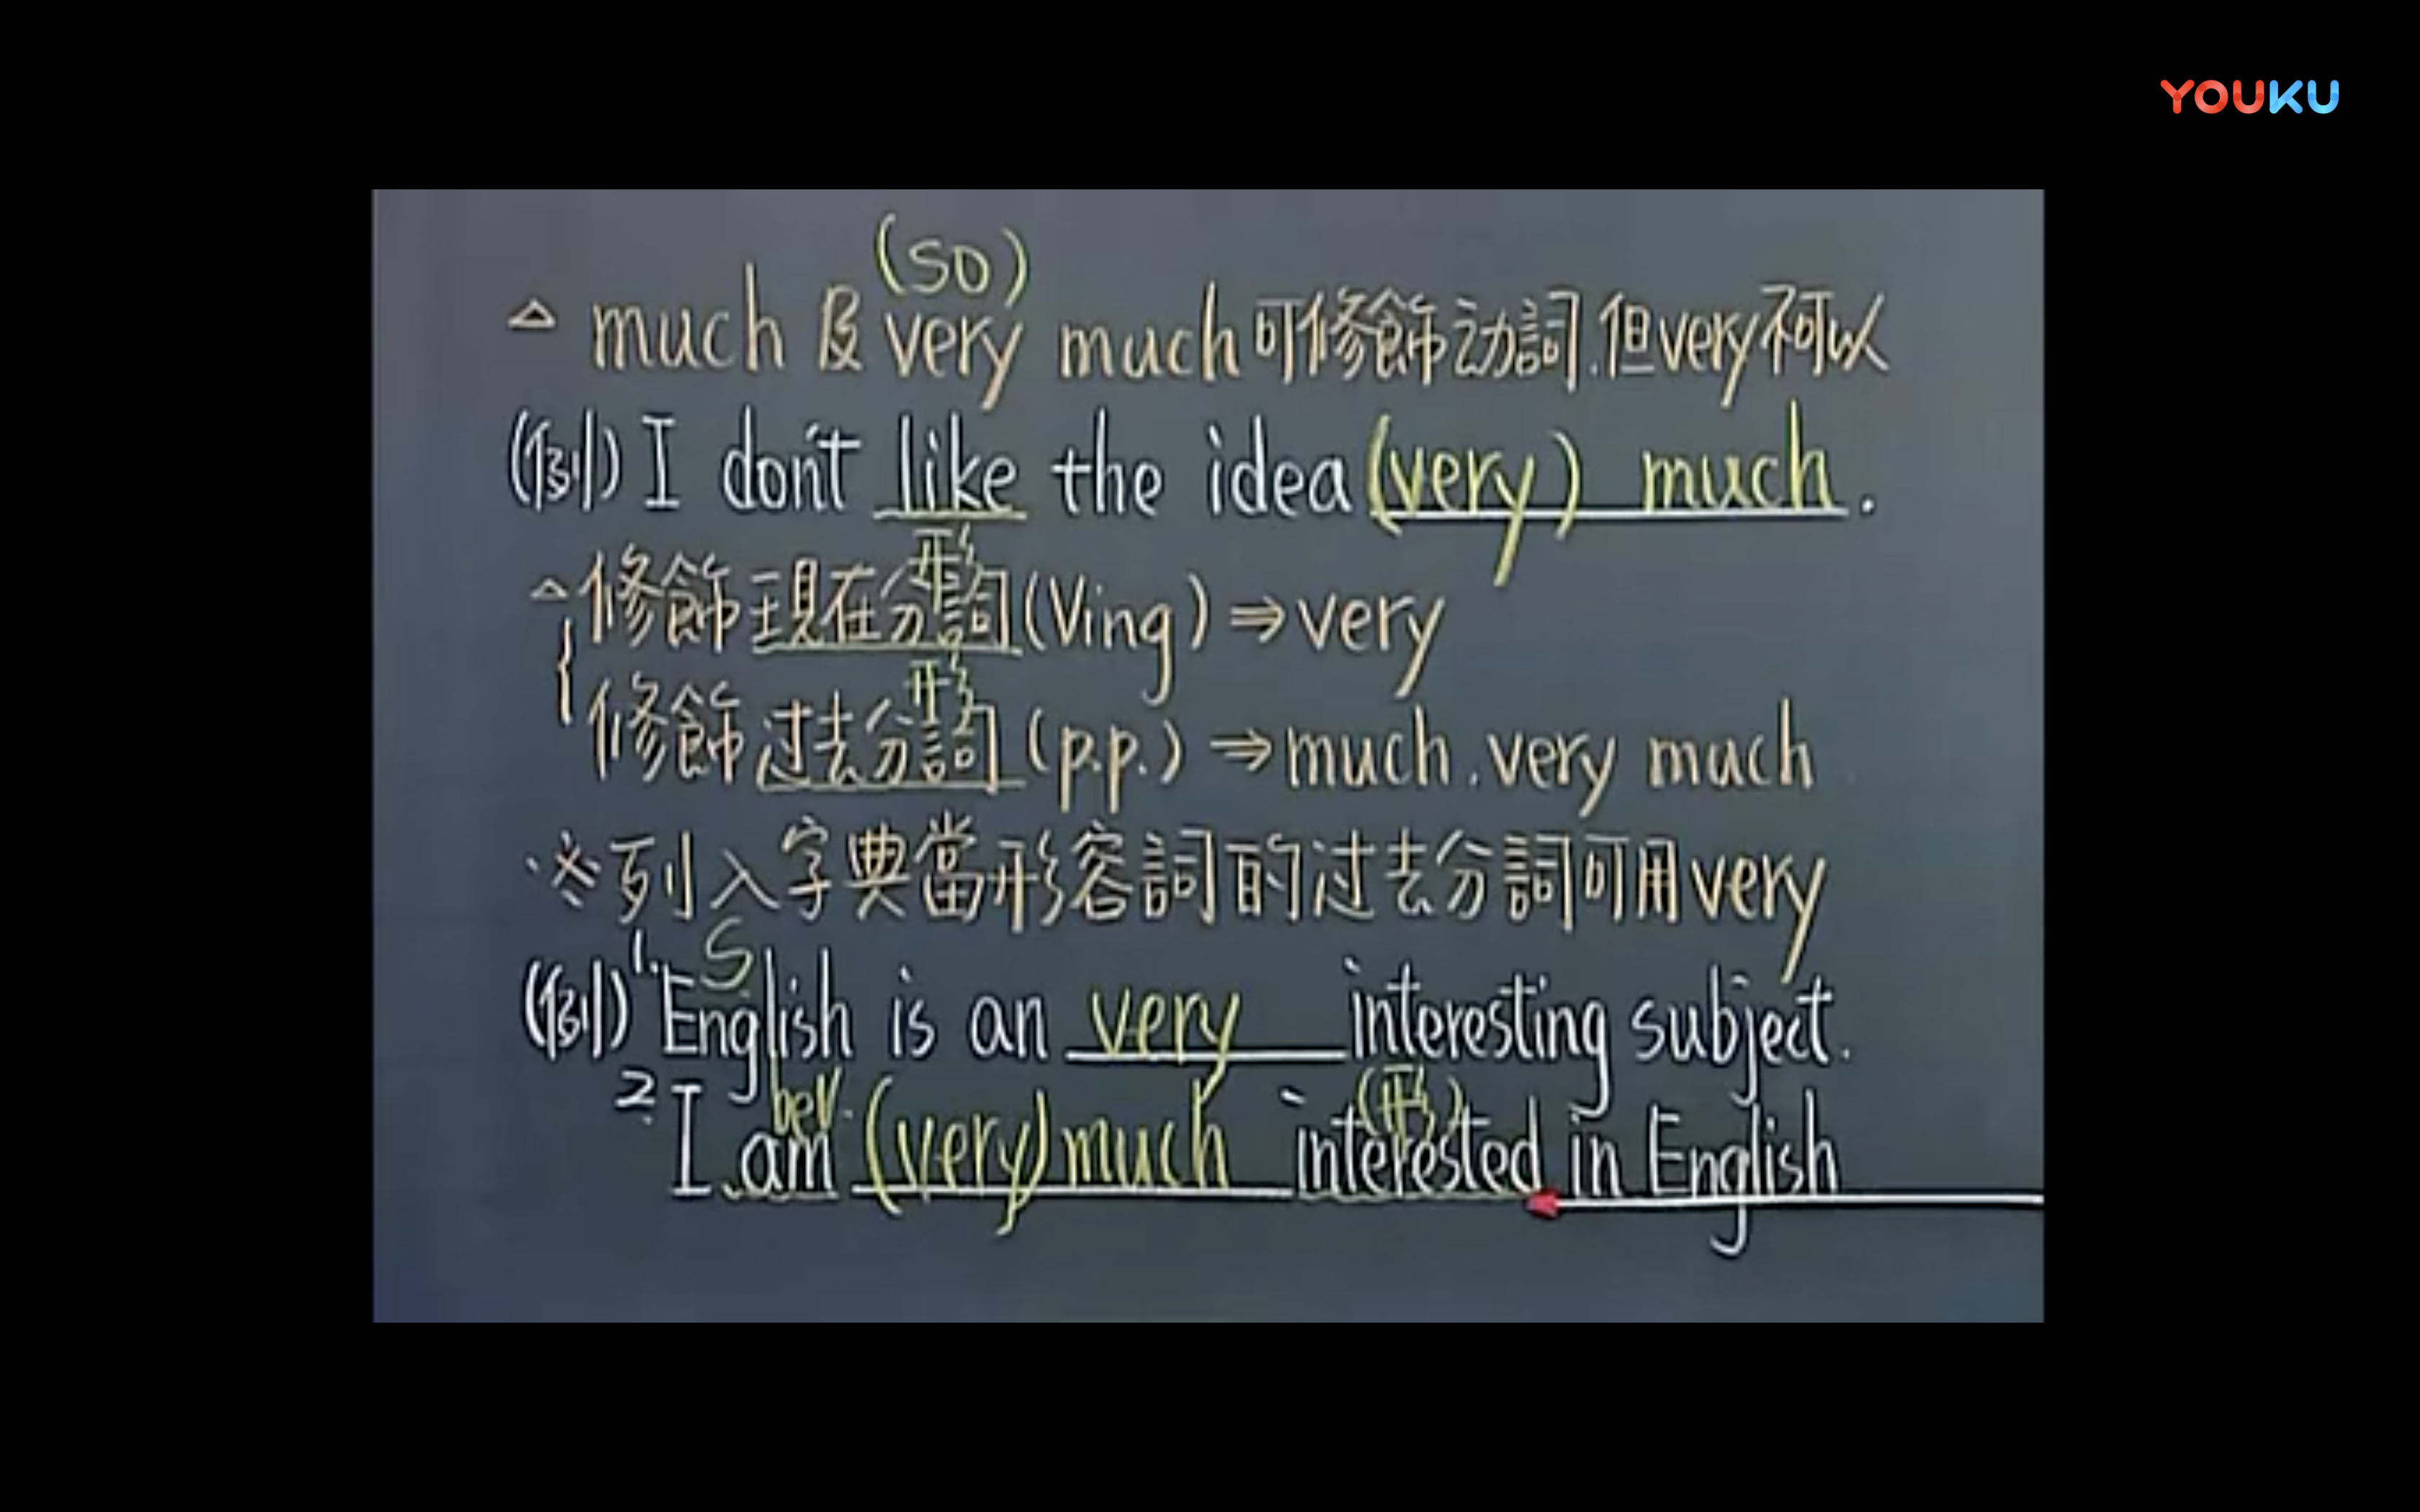 YOUKU
(so)
△ much 及 very much 可修飾动詞.但very不可以
(例) I don't like the idea (very) much.
形
△修飾現在分詞(Ving) ⇒ very
形
修飾过去分詞(p.p.) ⇒ much.very much
※列入字典當形容詞的过去分詞可用very
S
(例) 1. English is an very interesting subject.
beV. (形)
2. I am (very) much interested in English